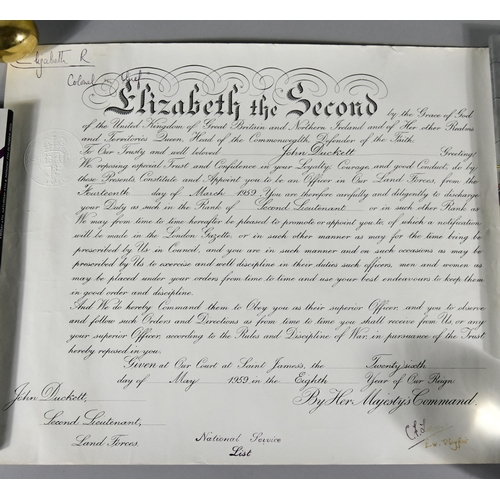 Elizabeth R
Colonel in Chief
Elizabeth the Second by the Grace of God
of the United Kingdom of Great Britain and Northern Ireland and of Her other Realms
and Territories Queen, Head of the Commonwealth, Defender of the Faith.
To Our Trusty and well beloved John Duckett Greeting:
We reposing especial Trust and Confidence in your Loyalty, Courage, and good Conduct, do by
these Presents Constitute and Appoint you to be an Officer in Our Land Forces from the
Fourteenth day of March 1959. You are therefore carefully and diligently to discharge
your Duty as such in the Rank of Second Lieutenant or in such other Rank as
We may from time to time hereafter be pleased to promote or appoint you to, of which a notification
will be made in the London Gazette, or in such other manner as may for the time being be
prescribed by Us in Council, and you are in such manner and on such occasions as may be
prescribed by Us to exercise and well discipline in their duties such officers, men and women as
may be placed under your orders from time to time and use your best endeavours to keep them
in good order and discipline.
And We do hereby Command them to Obey you as their superior Officer, and you to observe
and follow such Orders and Directions as from time to time you shall receive from Us, or any
your superior Officer, according to the Rules and Discipline of War, in pursuance of the Trust
hereby reposed in you.
Given at Our Court, at Saint James's, the Twentysixth
day of May 1959 in the Eighth Year of Our Reign
By Her Majesty's Command.
John Duckett,
Second Lieutenant,
Land Forces.
National Service
List